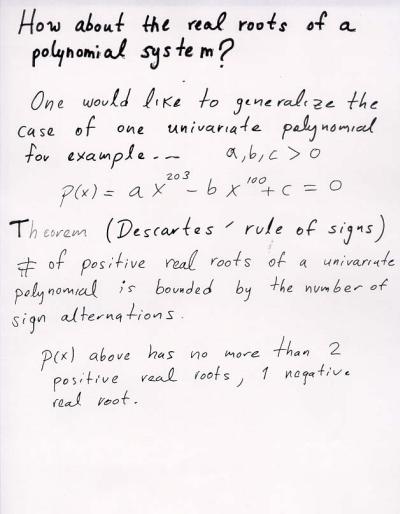 How about the real roots of a
polynomial system?
One would like to generalize the
case of one univariate polynomial
for example.-- a,b,c > 0
P(x) = a x^203 - b x^100 + c = 0
Theorem (Descartes' rule of signs)
# of positive real roots of a univariate
polynomial is bounded by the number of
sign alternations.
P(x) above has no more than 2
positive real roots, 1 negative
real root.